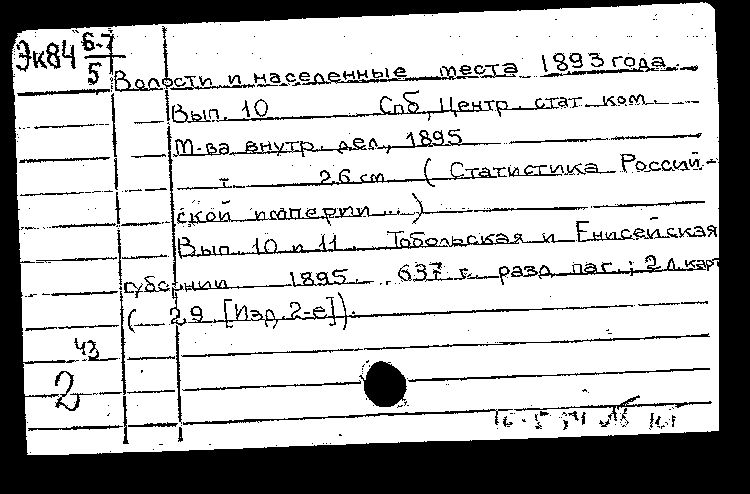 Эк84 6-7/5
Волости и населенные места 1893 года.
Вып. 10 Спб, Центр. стат. ком.
м-ва внутр. дел, 1895
т 26 см (Статистика Россий-
ской империи...)
Вып. 10 и 11. Тобольская и Енисейская
губернии 1895. 637 с. разд. паг.; 2 л. карт
(29 [Изд. 2-е]).
43
2
16-5